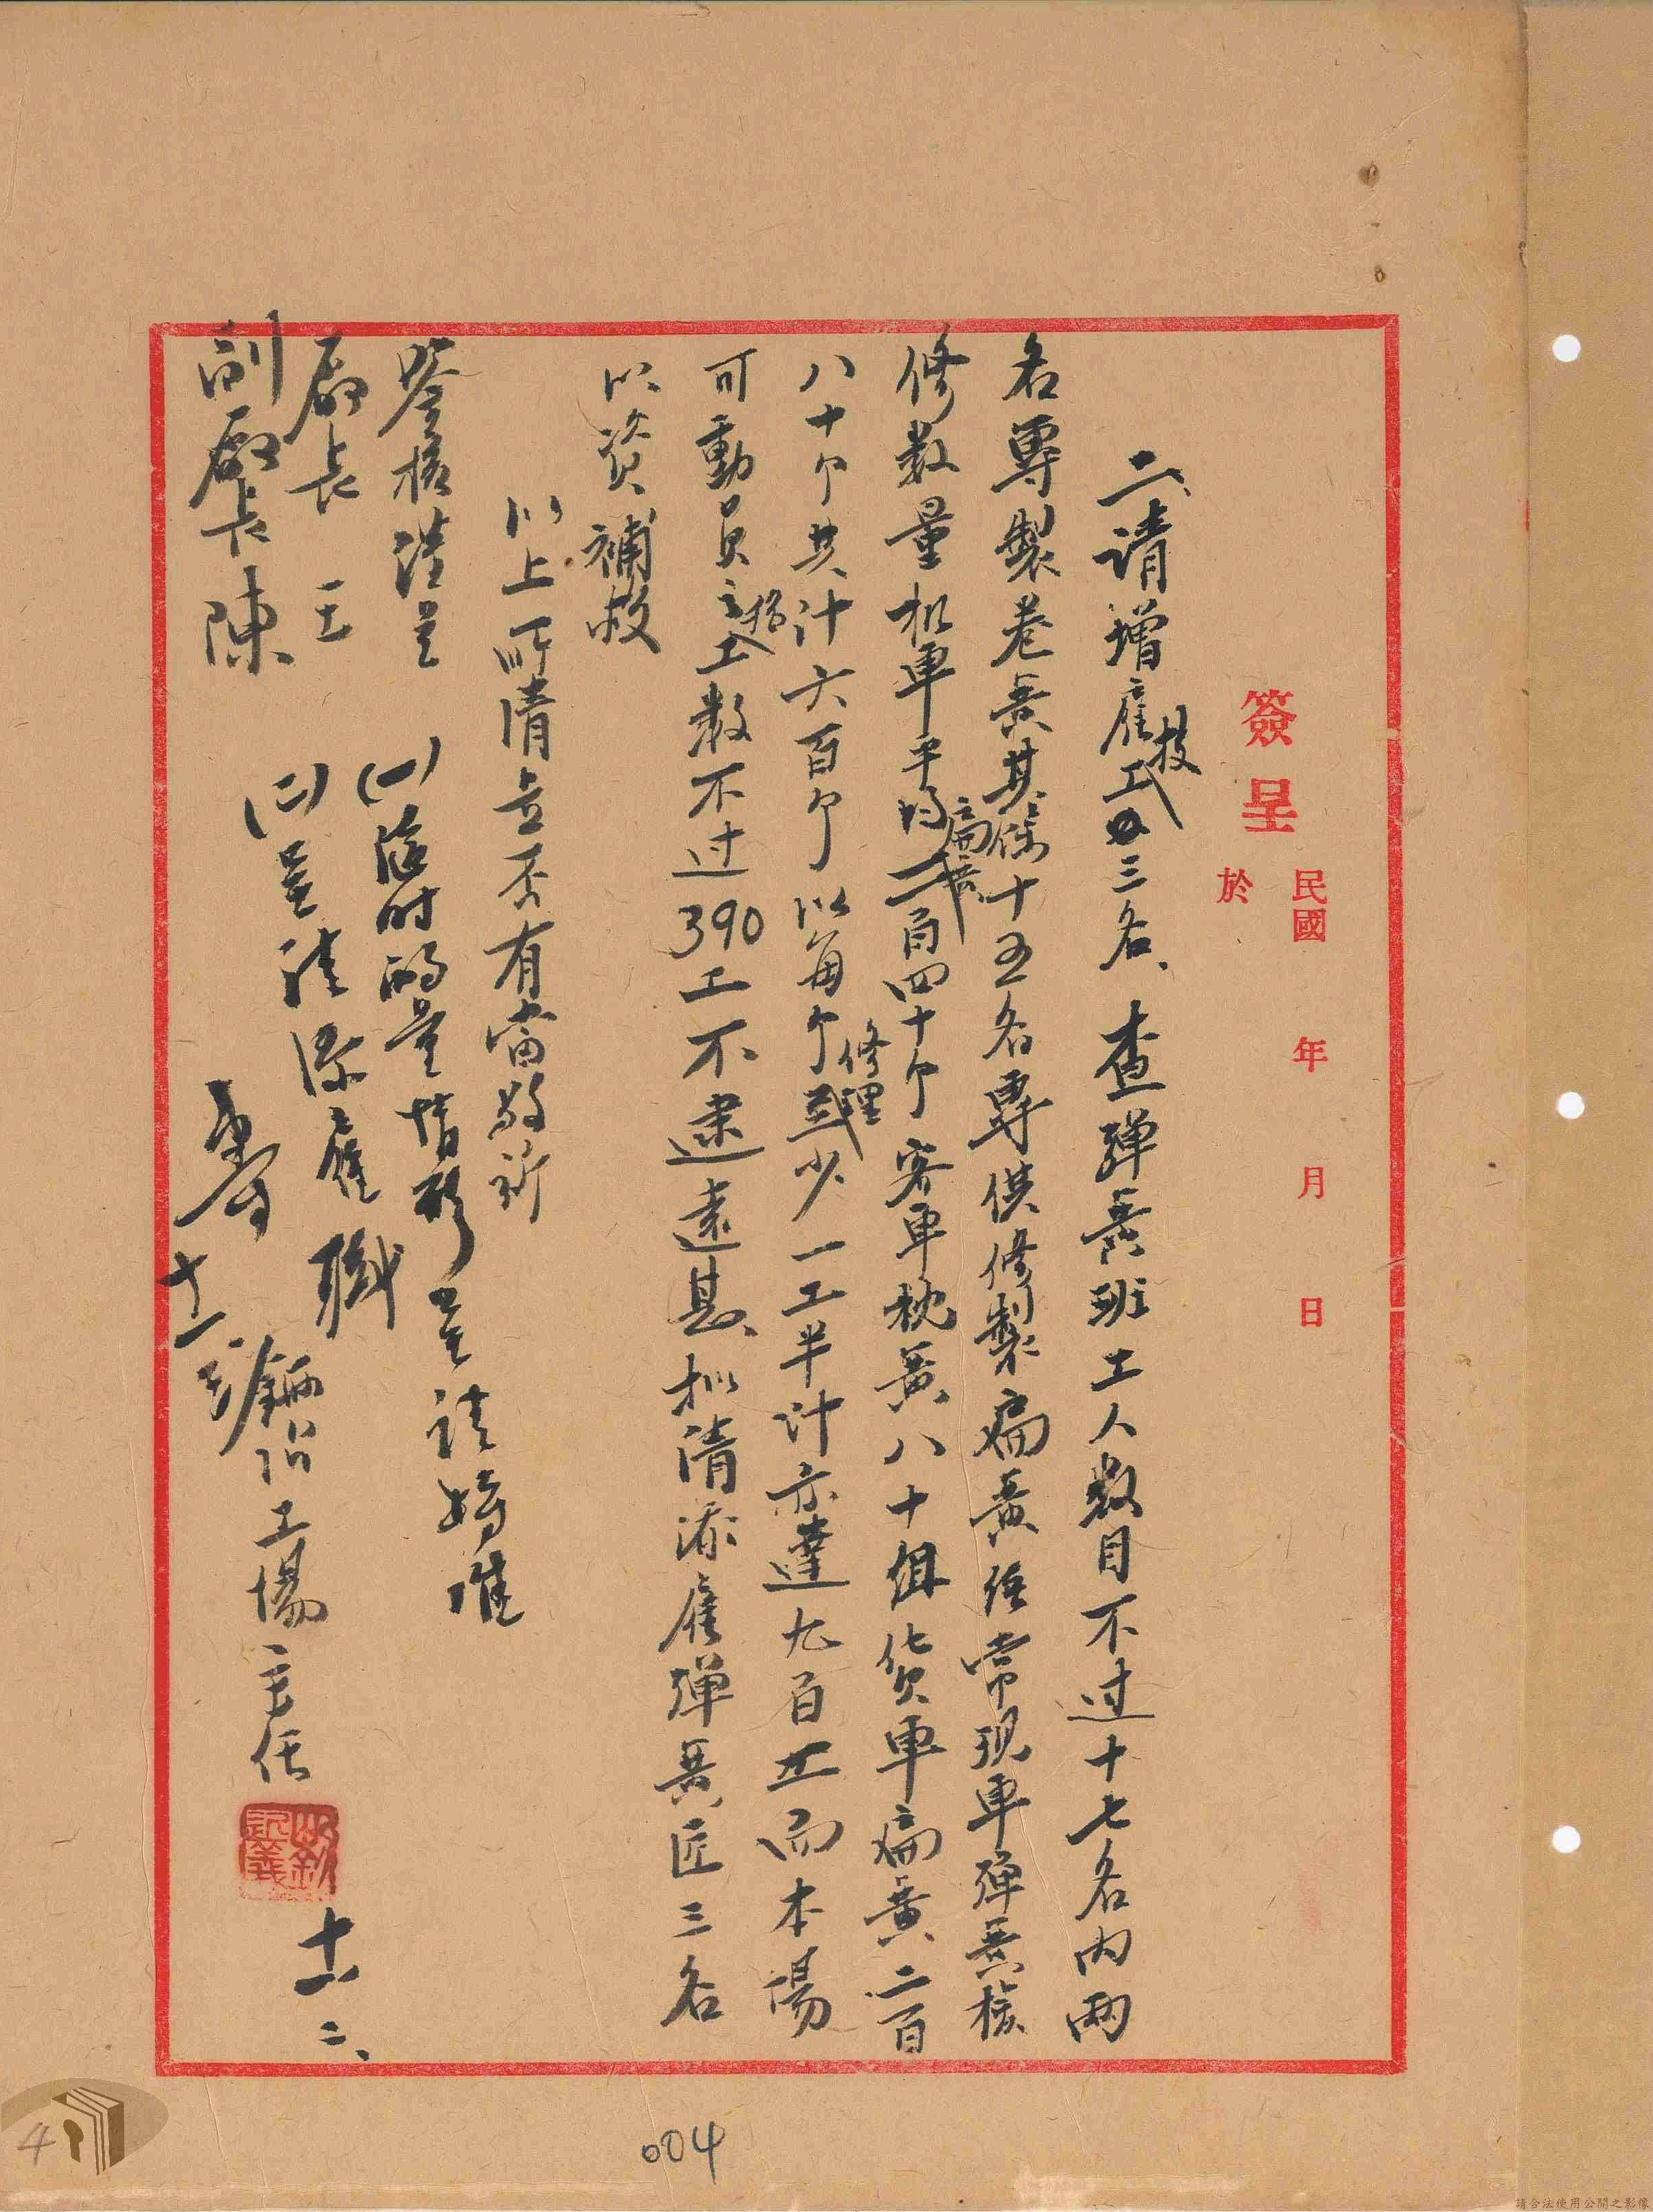 簽呈
民國 年 月 日
於
二、請增雇技工三名、查彈簧班工人數目不过十七名內兩
名專製卷簧其餘十五名專供修製扁簧經常現車彈簧檢
修數量機車平均扁簧二百四十个客車枕簧八十組貨車扁簧二百
八十个共計六百个以每个修理至少一工半計亦達九百工而本場
可動員之工數不过390工不逮遠甚、擬請添雇彈簧匠三名
以資補救
以上所請是否有當敬祈
鑒核謹呈
廠長 王
副廠長 陳
(一)臨時酌量情形呈請
(二)呈請添雇
職
工場主任
十一、二、
004
4
請合法使用公開之影像